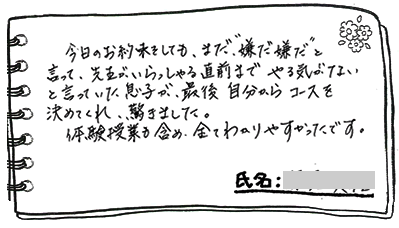 今日のお約束をしても、まだ"嫌だ嫌だ"と
言って、先生がいらっしゃる直前まで やる気がない
と言っていた息子が、最後 自分から コースを
決めてくれ、驚きました。
体験授業も含め、全てわかりやすかったです。
氏名: